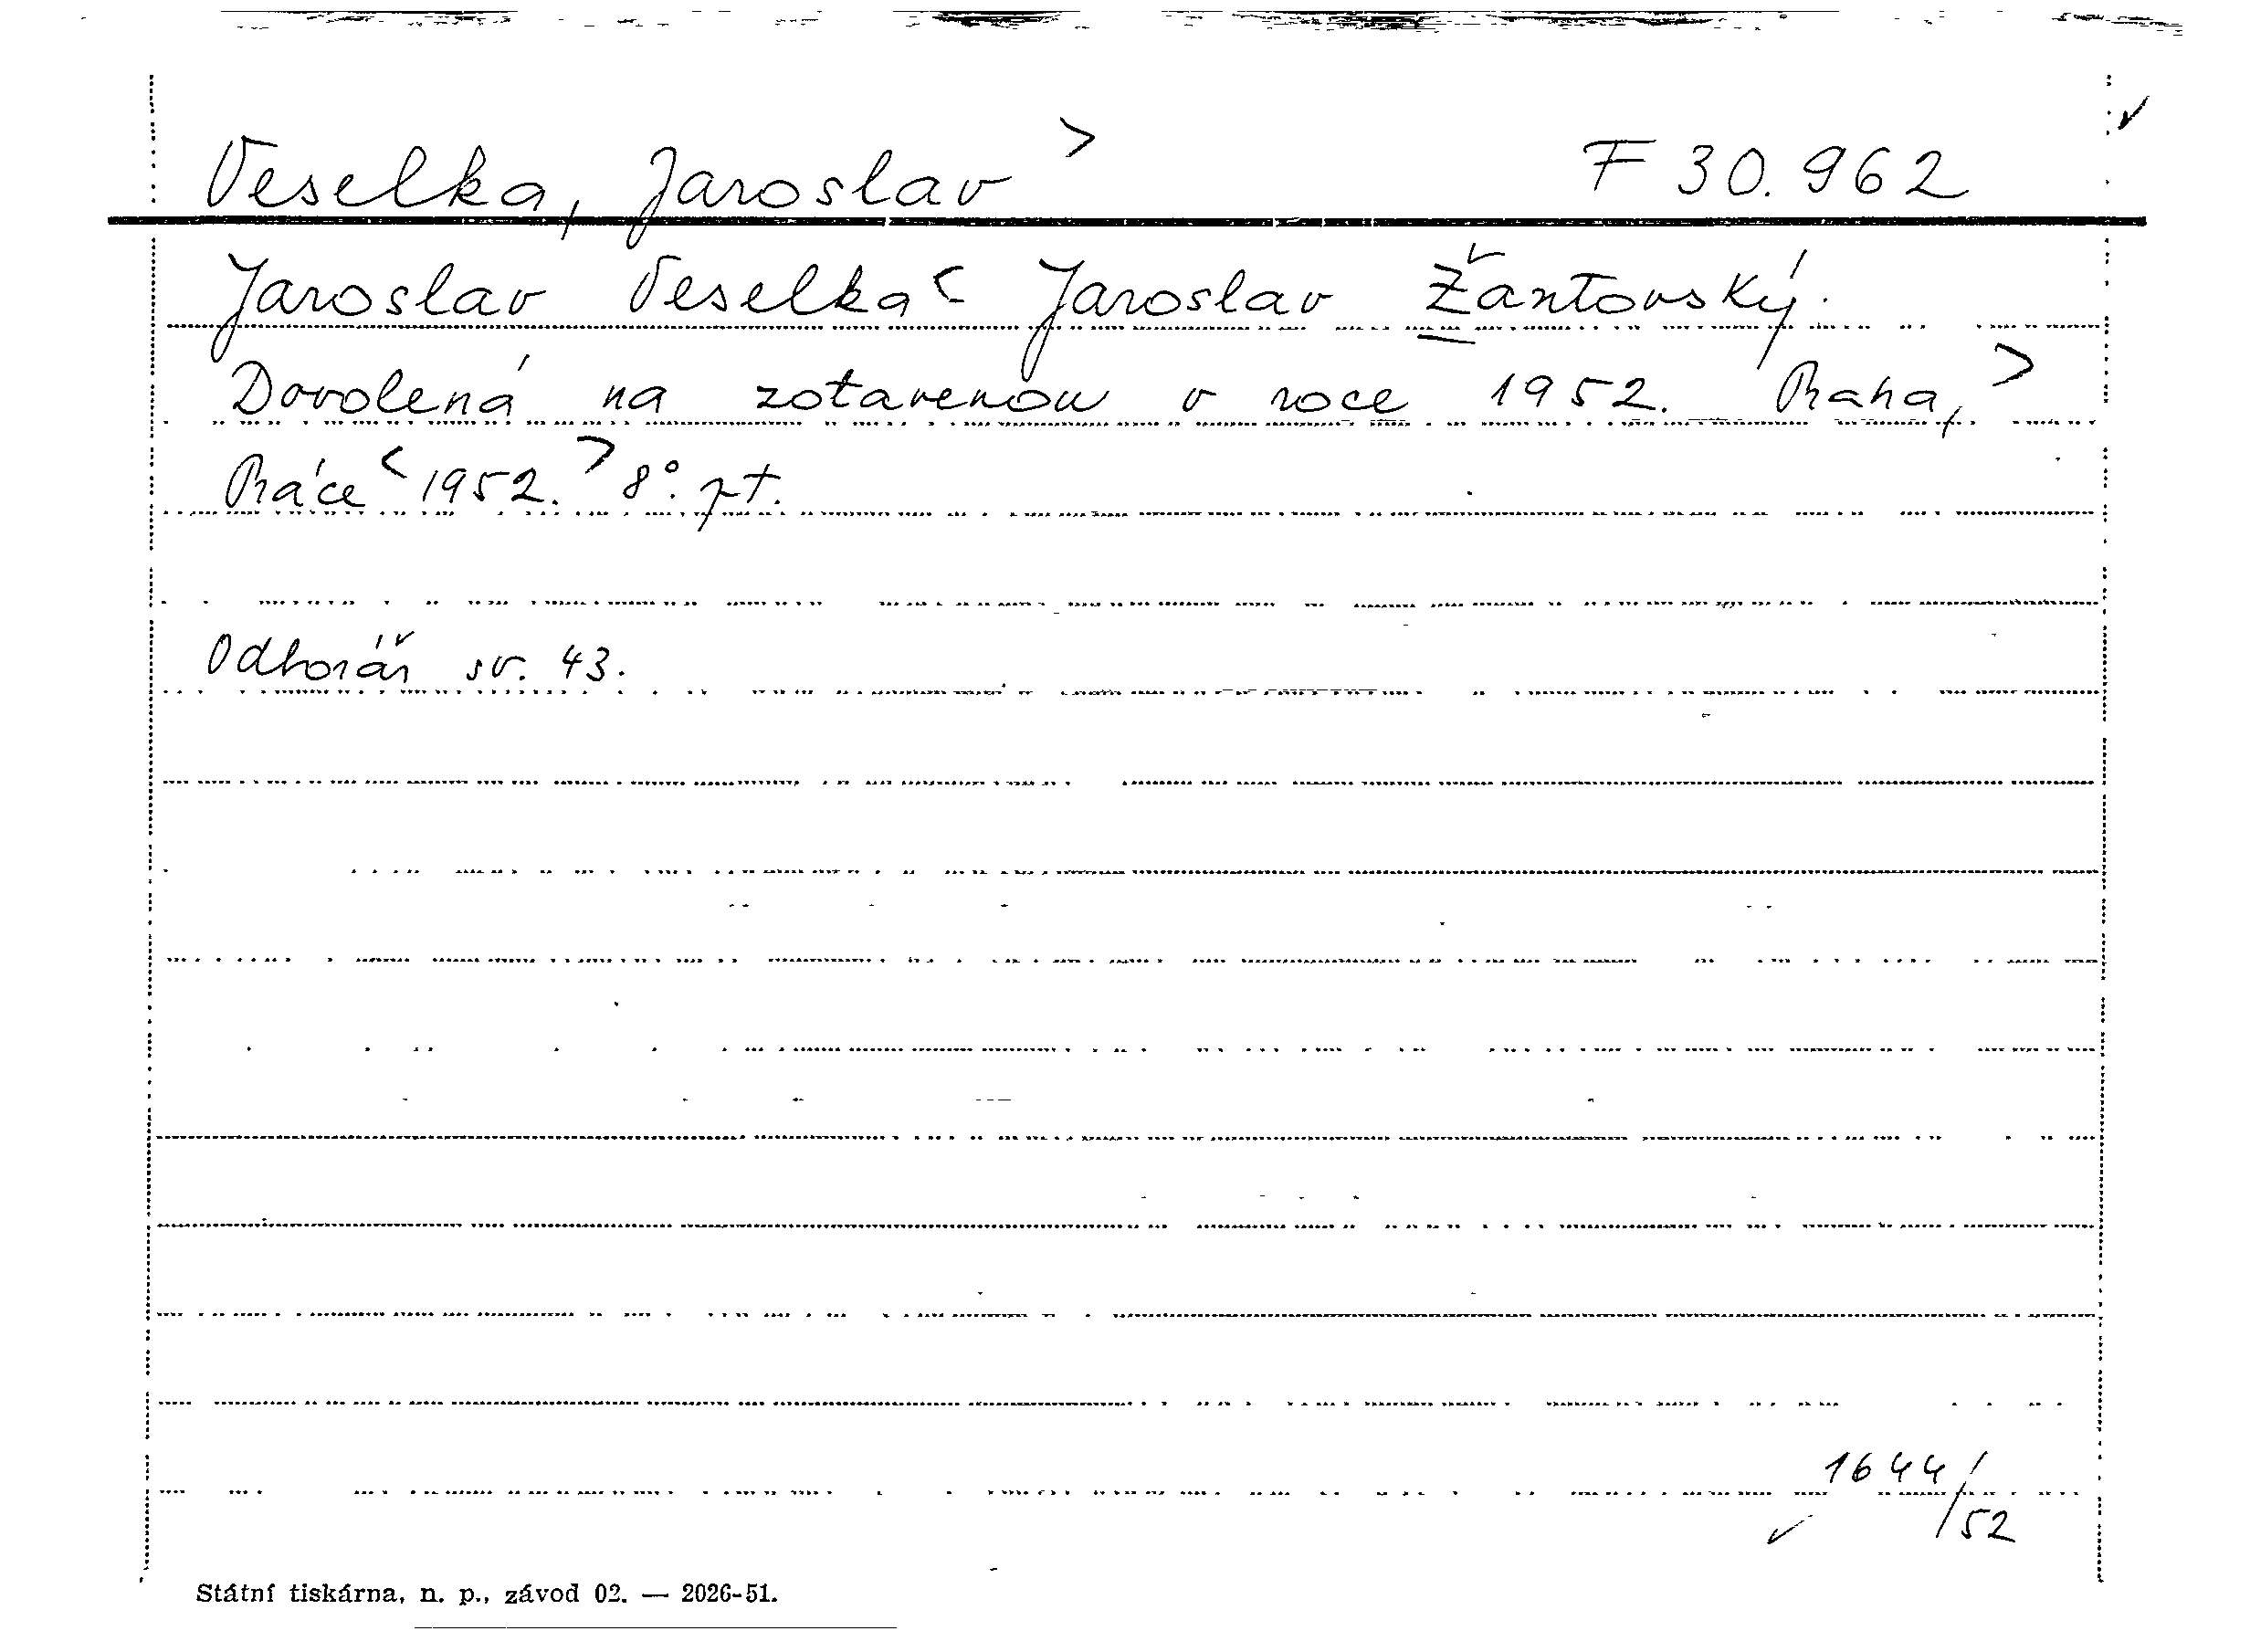 Veselka, Jaroslav > F 30.962
Jaroslav Veselka < Jaroslav Žantovský.
Dovolená na zotavenou v roce 1952. Praha, >
Práce < 1952. > 8°. pt.
Odborář sv. 43.
1644/52
Státní tiskárna, n. p., závod 02. — 2026-51.